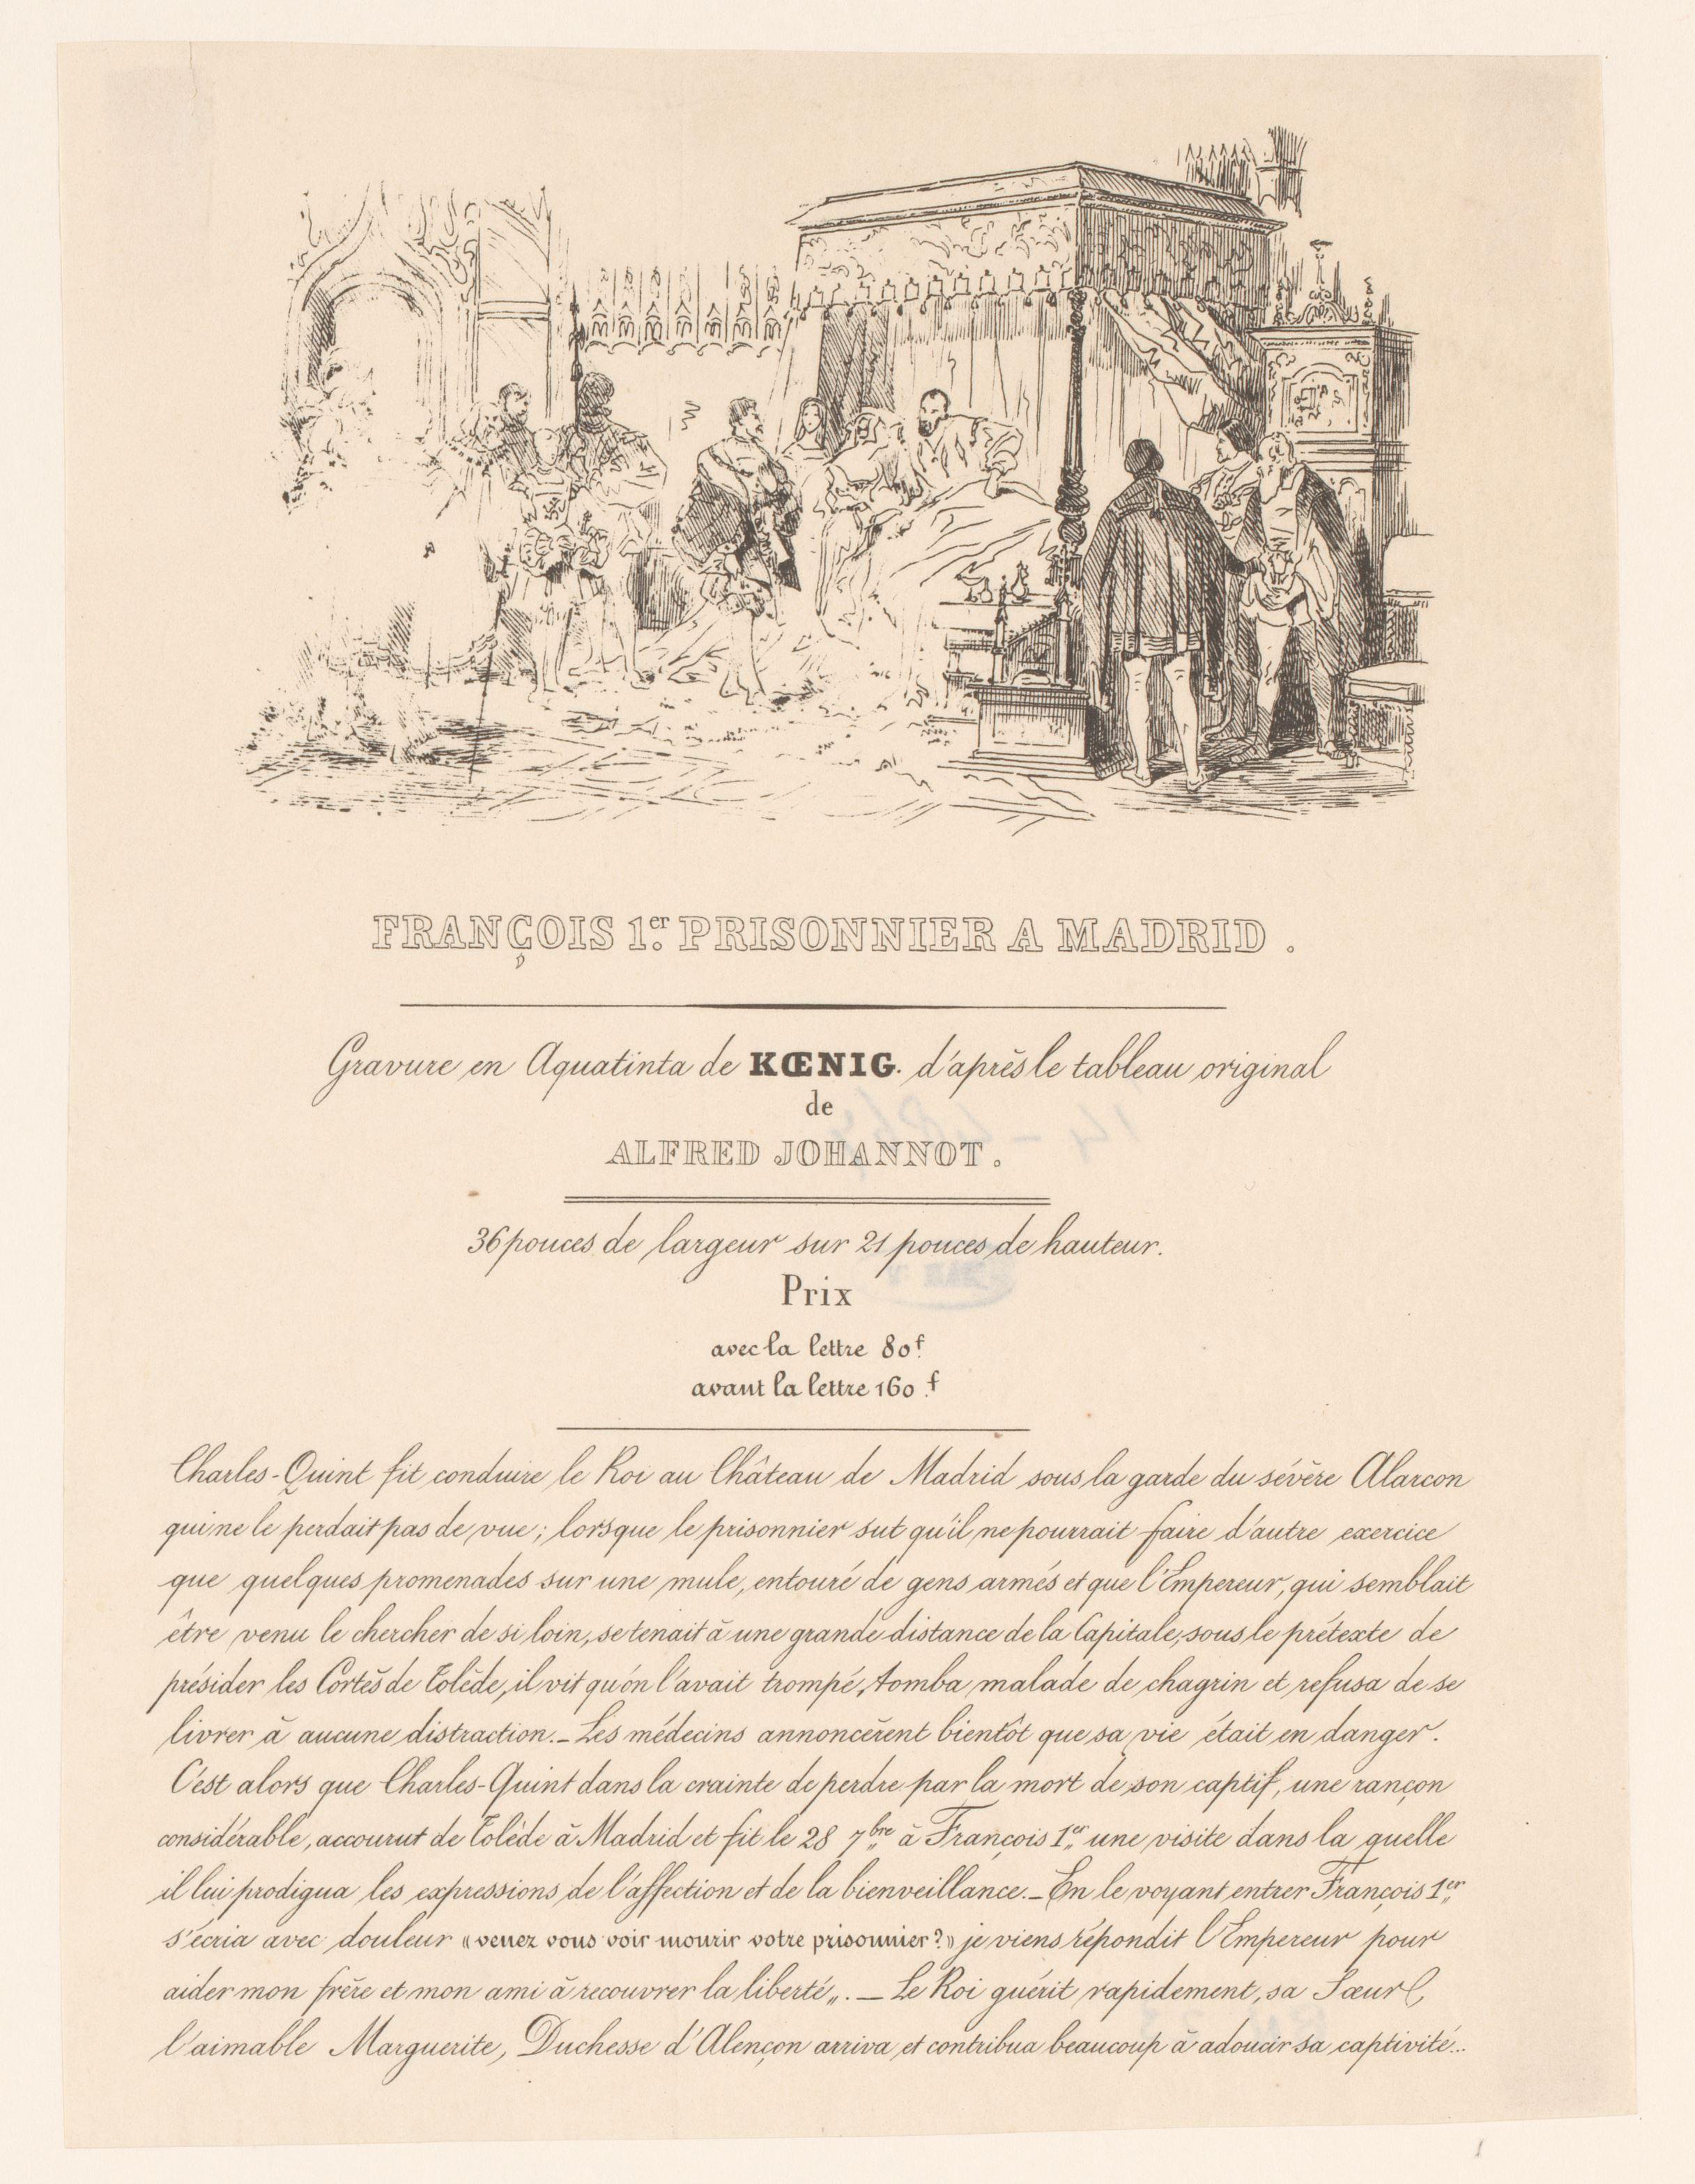 FRANÇOIS 1.er PRISONNIER A MADRID .
Gravure en Aquatinta de KŒNIG. d'après le tableau original
de
ALFRED JOHANNOT .
36 pouces de largeur sur 21 pouces de hauteur.
Prix
avec la lettre 80.f
avant la lettre 160.f
Charles-Quint fit conduire le Roi au Château de Madrid sous la garde du sévère Alarcon
qui ne le perdait pas de vue; lorsque le prisonnier sut qu'il ne pourrait faire d'autre exercice
que quelques promenades sur une mule, entouré de gens armés et que l'Empereur, qui semblait
être venu le chercher de si loin, se tenait à une grande distance de la Capitale, sous le prétexte de
présider les Cortès de Tolède, il vit qu'on l'avait trompé, tomba malade de chagrin et refusa de se
livrer à aucune distraction._ Les médecins annoncèrent bientôt que sa vie était en danger.
C'est alors que Charles-Quint dans la crainte de perdre par la mort de son captif, une rançon
considérable, accourut de Tolède à Madrid et fit le 28 7bre à François 1er une visite dans la quelle
il lui prodigua les expressions de l'affection et de la bienveillance._ En le voyant entrer François 1er
s'écria avec douleur «venez vous voir mourir votre prisonnier?» je viens répondit l'Empereur pour
aider mon frère et mon ami à recouvrer la liberté„. _ Le Roi guérit rapidement, sa Sœur,
l'aimable Marguerite, Duchesse d'Alençon arriva et contribua beaucoup à adoucir sa captivité...